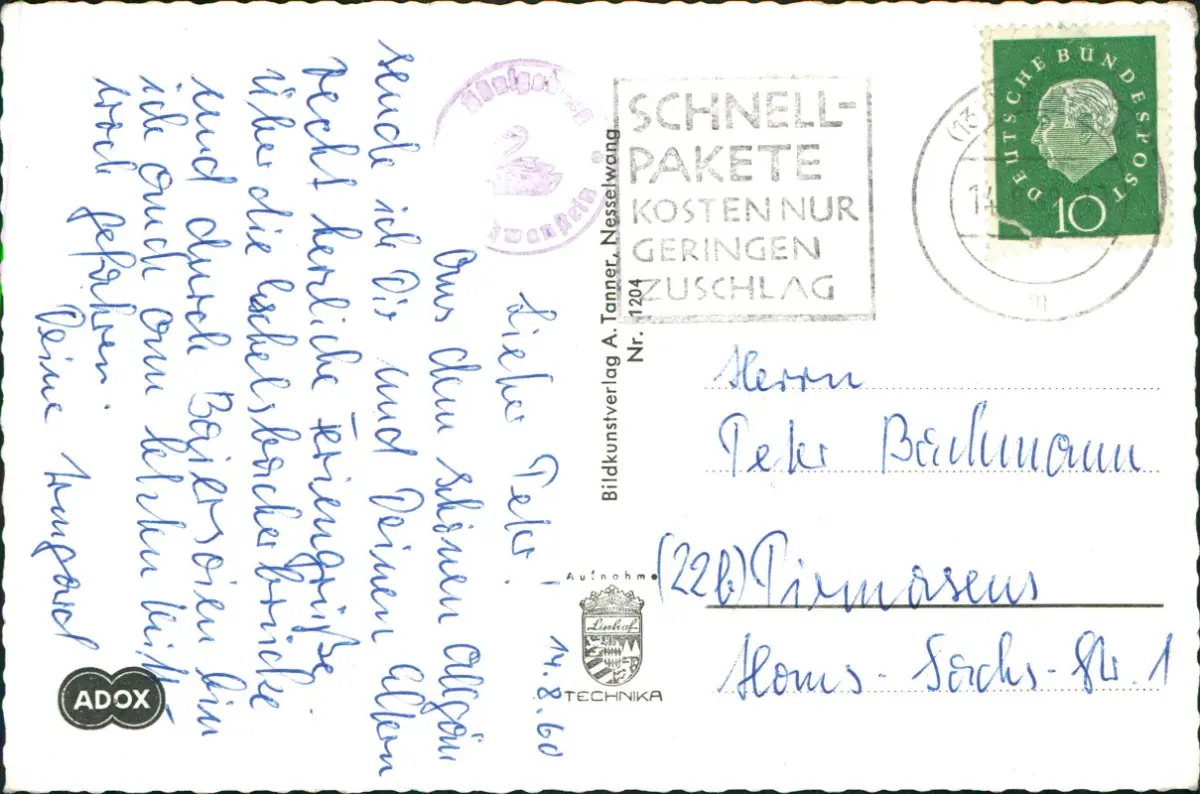 14.8.60
Lieber Peter!
Aus dem schönen Allgäu
sende ich Dir und Deinen Eltern
recht herzliche Feriengrüße.
Über die Echelsbacherbrücke
und durch Baiersoien bin
ich auch am letzten Mittw
noch gefahren.
Deine Irmgard
ADOX
Bildkunstverlag A. Tanner, Nesselwang
Nr. 1204
Aufnahme
Linhof
TECHNIKA
SCHNELL-
PAKETE
KOSTEN NUR
GERINGEN
ZUSCHLAG
DEUTSCHE BUNDESPOST
10
(13
14
Herrn
Peter Bachmann
(22b) Pirmasens
Hans-Sachs-Str. 1